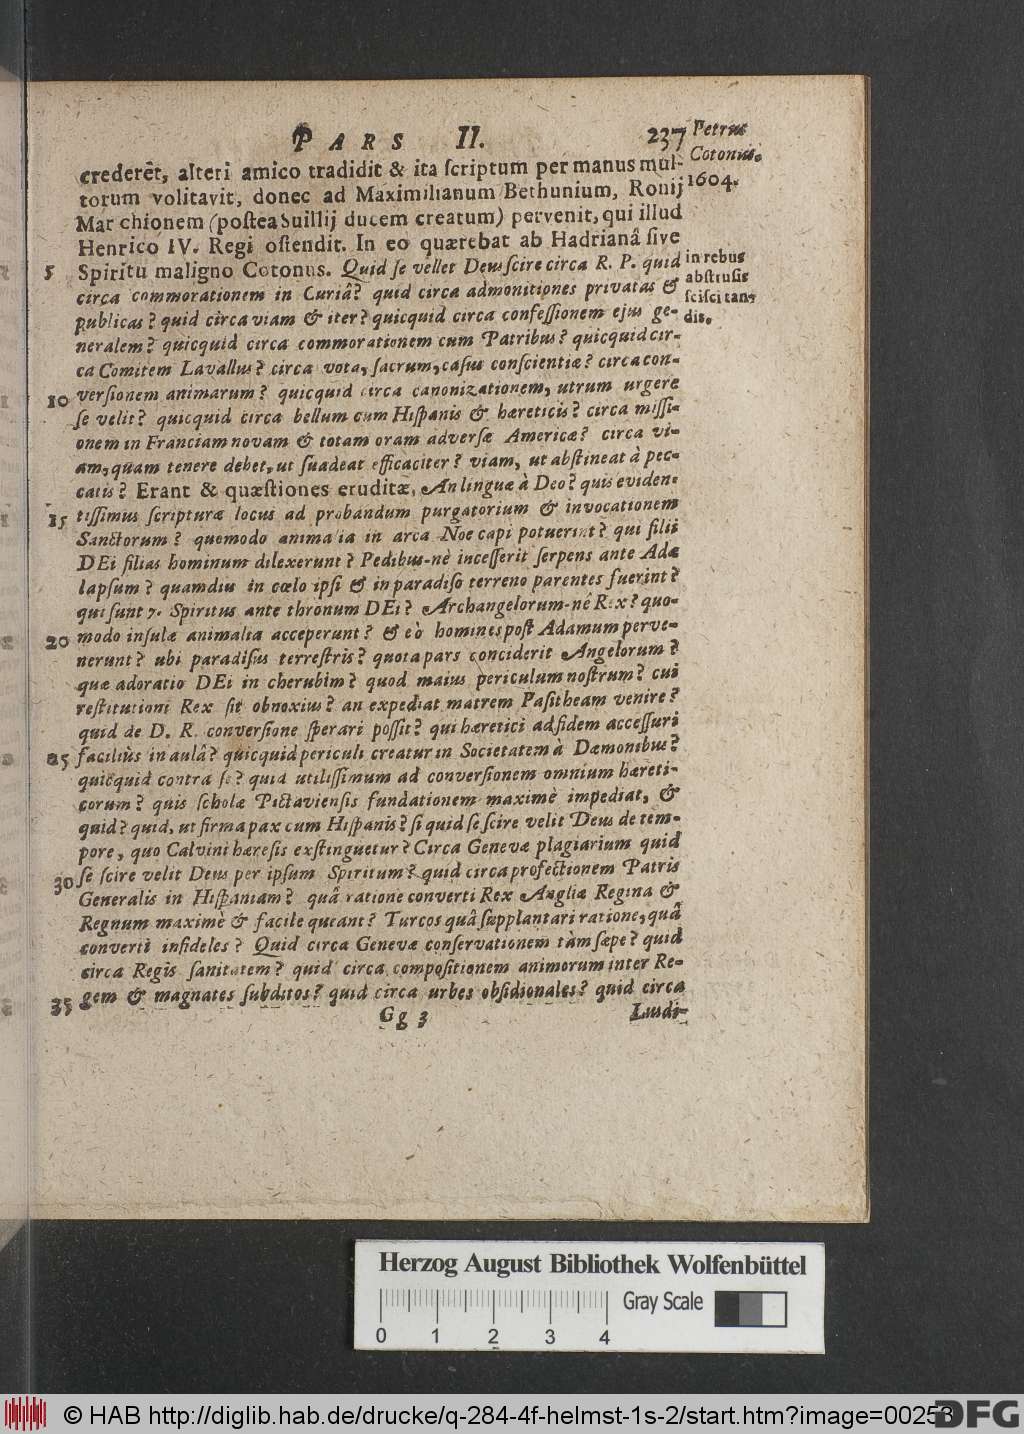 PARS II. 237
Petrus
Cotonus.
1604.
crederêt, alteri amico tradidit & ita ſcriptum per manus mul-
torum volitavit, donec ad Maximilianum Bethunium, Ronij
Mar chionem (poſtea Suillij ducem creatum) pervenit, qui illud
Henrico IV. Regi oſtendit. In eo quærebat ab Hadrianâ ſive
5 Spiritu maligno Cotonus. Quid ſe vellet Deus ſcire circa R. P. quid
in rebus
abſtruſis
ſciſcitan-
dis.
circa commorationem in Curiâ? quid circa admonitiones privatas &
publicas? quid circa viam & iter? quicquid circa confeſſionem ejus ge-
neralem? quicquid circa commorationem cum Patribus? quicquid cir-
ca Comitem Lavallus? circa vota, ſacrum, caſus conſcientiæ? circa con-
10 verſionem animarum? quicquid circa canonizationem, utrum urgere
ſe velit? quicquid circa bellum cum Hiſpanis & hæreticis? circa miſſi-
onem in Franciam novam & totam oram adverſæ Americæ? circa vi-
am, quam tenere debet, ut ſuadeat efficaciter? viam, ut abſtineat à pec-
catis? Erant & quæſtiones eruditæ, An linguæ à Deo? quis eviden-
15 tiſſimus ſcripturæ locus ad probandum purgatorium & invocationem
Sanctorum? quomodo animalia in arca Noe capi potuerint? qui filii
DEi filias hominum dilexerunt? Pedibus-nè inceſſerit ſerpens ante Adæ
lapſum? quamdiu in cœlo ipſi & in paradiſo terreno parentes fuerint?
qui ſunt 7. Spiritus ante thronum DEi? Archangelorum-né Rex? quo-
20 modo inſulæ animalia acceperunt? & eò homines poſt Adamum perve-
nerunt? ubi paradiſus terreſtris? quota pars conciderit Angelorum?
quæ adoratio DEi in cherubim? quod maius periculum noſtrum? cui
reſtitutioni Rex ſit obnoxius? an expediat matrem Paſitheam venire?
quid de D. R. converſione ſperari poſſit? qui hæretici ad fidem acceſſuri
25 faciliùs in aulâ? quicquid periculi creatur in Societatem à Dæmonibus?
quicquid contra ſe? quid utiliſſimum ad converſionem omnium hæreti-
corum? quis ſcholæ Pictavienſis fundationem maximè impediat, &
quid? quid, ut firma pax cum Hiſpanis? ſi quid ſe ſcire velit Deus de tem-
pore, quo Calvini hæreſis exſtinguetur? Circa Genevæ plagiarium quid
30 ſe ſcire velit Deus per ipſum Spiritum? quid circa profectionem Patris
Generalis in Hiſpaniam? quâ ratione converti Rex Angliæ Regina &
Regnum maximè & facile queant? Turcos quâ ſupplantari ratione, quâ
converti infideles? Quid circa Genevæ conſervationem tàm ſæpe? quid
circa Regis ſanitatem? quid circa compoſitionem animorum inter Re-
35 gem & magnates ſubditos? quid circa urbes obſidionales? quid circa
Gg 3 Luidi-
Herzog August Bibliothek Wolfenbüttel
Gray Scale
0 1 2 3 4
© HAB http://diglib.hab.de/drucke/q-284-4f-helmst-1s-2/start.htm?image=00253
DFG